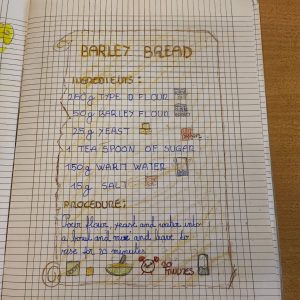 BARLEY BREAD
INGREDIENTS:
250g TYPE 0 FLOUR
50g BARLEY FLOUR
25g YEAST
1 TEA SPOON OF SUGAR
150g WARM WATER
15g SALT
PROCEDURE:
Pour flour, yeast and water into
a bowl and mix and leave to
rise for 20 minutes
20
MINUTES